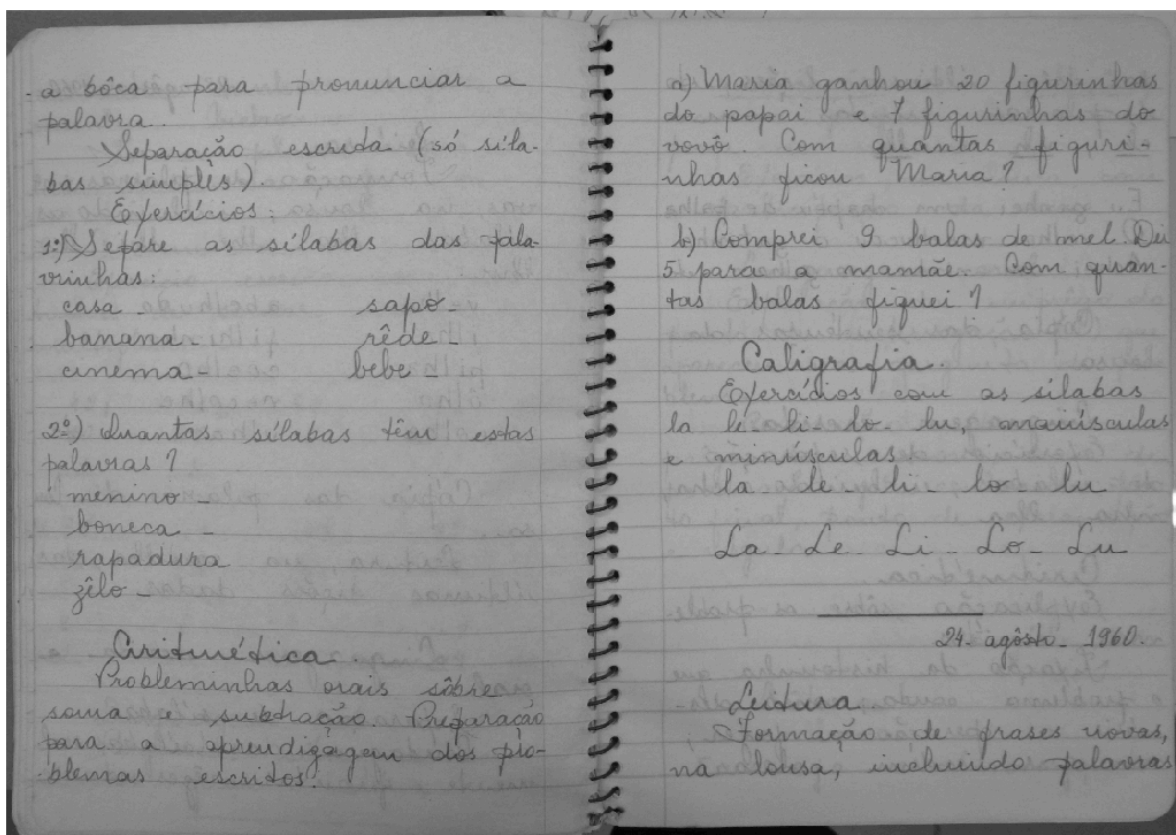 a bôca para pronunciar a
palavra.
Separação escrida (só síla-
bas simples).
Exercícios:
1º) Separe as sílabas das pala-
vrinhas:
casa - sapo -
banana - rêde -
cinema - bebe -
2º) Quantas sílabas têm estas
palavras?
menino -
boneca -
rapadura
zêlo -
Aritmética
Probleminhas orais sôbre
soma e subtração. Preparação
para a aprendizagem dos pro-
blemas escritos.
a) Maria ganhou 20 figurinhas
do papai e 7 figurinhas do
vovô. Com quantas figuri-
nhas ficou Maria?
b) Comprei 9 balas de mel. Dei
5 para a mamãe. Com quan-
tas balas fiquei?
Caligrafia.
Exercícios com as sílabas
la le - li - lo - lu, maiúsculas
e minúsculas.
la - le - li - lo - lu
La - Le Li - Lo - Lu
24 - agôsto - 1960.
Leitura
Formação de frases novas,
na lousa, incluindo palavras